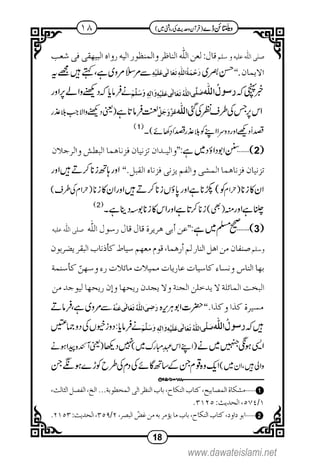 ویلنٹائن ڈے (قرآن وحدیث کی روشنی میں) ۱۸
صلی اللہ علیہ و سلم قال: لعن اللّٰه الناظر والمنظور اليه رواه البيهقى فى شعب
الايمان ۔“ حسن بصری رَحْمَۃُ اللّٰہِ تَعَالٰی عَلَیْہِ سے مرسلاً مروی ہے، فرمایا میں کہتے ہیں مجھے یہ
خبر پہنچی کہ رسول اللّٰہ صَلَّی اللّٰہُ تَعَالٰی عَلَیْہِ وَاٰلِہٖ وَسَلَّمَ نے فرمایا کہ دیکھنے والے پر اور
اس پر جس کی طرف نظر کی گئی اللّٰہ عَزَّوَجَلَّ لعنت فرماتا ہے (یعنی دیکھنے والا جب بلا عذر
قصداً دیکھے اور دوسرا اپنے کو بلا عذر قصداً دکھائے)۔ (1)
﴿2﴾—— سنن ابو داؤد میں ہے: ”واليدان تزنيان فزناهما البطش والرجلان
تزنيان فزناهما المشى والفم يزنى فزناه القبل۔“ اور ہاتھ زنا کرتے ہیں اور
ان کا زنا (حرام کو) پکڑنا ہے اور پاؤں زنا کرتے ہیں اور ان کا زنا (حرام کی طرف)
چلنا ہے اور منہ (بھی) زنا کرتا ہے اور اس کا زنا بوسہ دینا ہے۔ (2)
﴿3﴾—— صحیح مسلم میں ہے: ”عن أبى هريرة قال قال رسول اللّٰه صلى الله عليه
وسلم صنفان من اهل النار لم أرهما، قوم معهم سياط كأذناب البقر يضربون
بها الناس و نساء كاسيات عاريات مميلات مائلات رءوسهنّ كأسنمة
البخت المائلة لا يدخلن الجنة ولا يجدن ريحها وإن ريحها ليوجد من
مسيرة كذا وكذا۔“ حضرت ابو ہریرہ رَضِیَ اللّٰہُ تَعَالٰی عَنْہُ سے مروی ہے، فرماتے
ہیں کہ رسول اللّٰہ صَلَّی اللّٰہُ تَعَالٰی عَلَیْہِ وَاٰلِہٖ وَسَلَّمَ نے فرمایا: دوزخیوں کی دو جماعتیں
ایسی ہوں گی جنہیں میں نے (اپنے اس عہدِ مبارک میں) نہیں دیکھا (یعنی آئندہ پیدا ہونے
والی ہیں، ان میں) ایک وہ قوم جن کے ساتھ گائے کی دم کی طرح کوڑے ہوں گے جن
1 ——مشكاة المصابيح، كتاب النكاح، باب النظر الى المخطوبة... الخ، الفصل الثالث،
۵۷۴/۱، الحدیث: ۳۱۲۵.
2 ——ابو داود، كتاب النكاح، باب ما يؤمر به من غضّ البصر، ۳۵۹/۲، الحدیث: ۲۱۵۳.
18
www.dawateislami.net